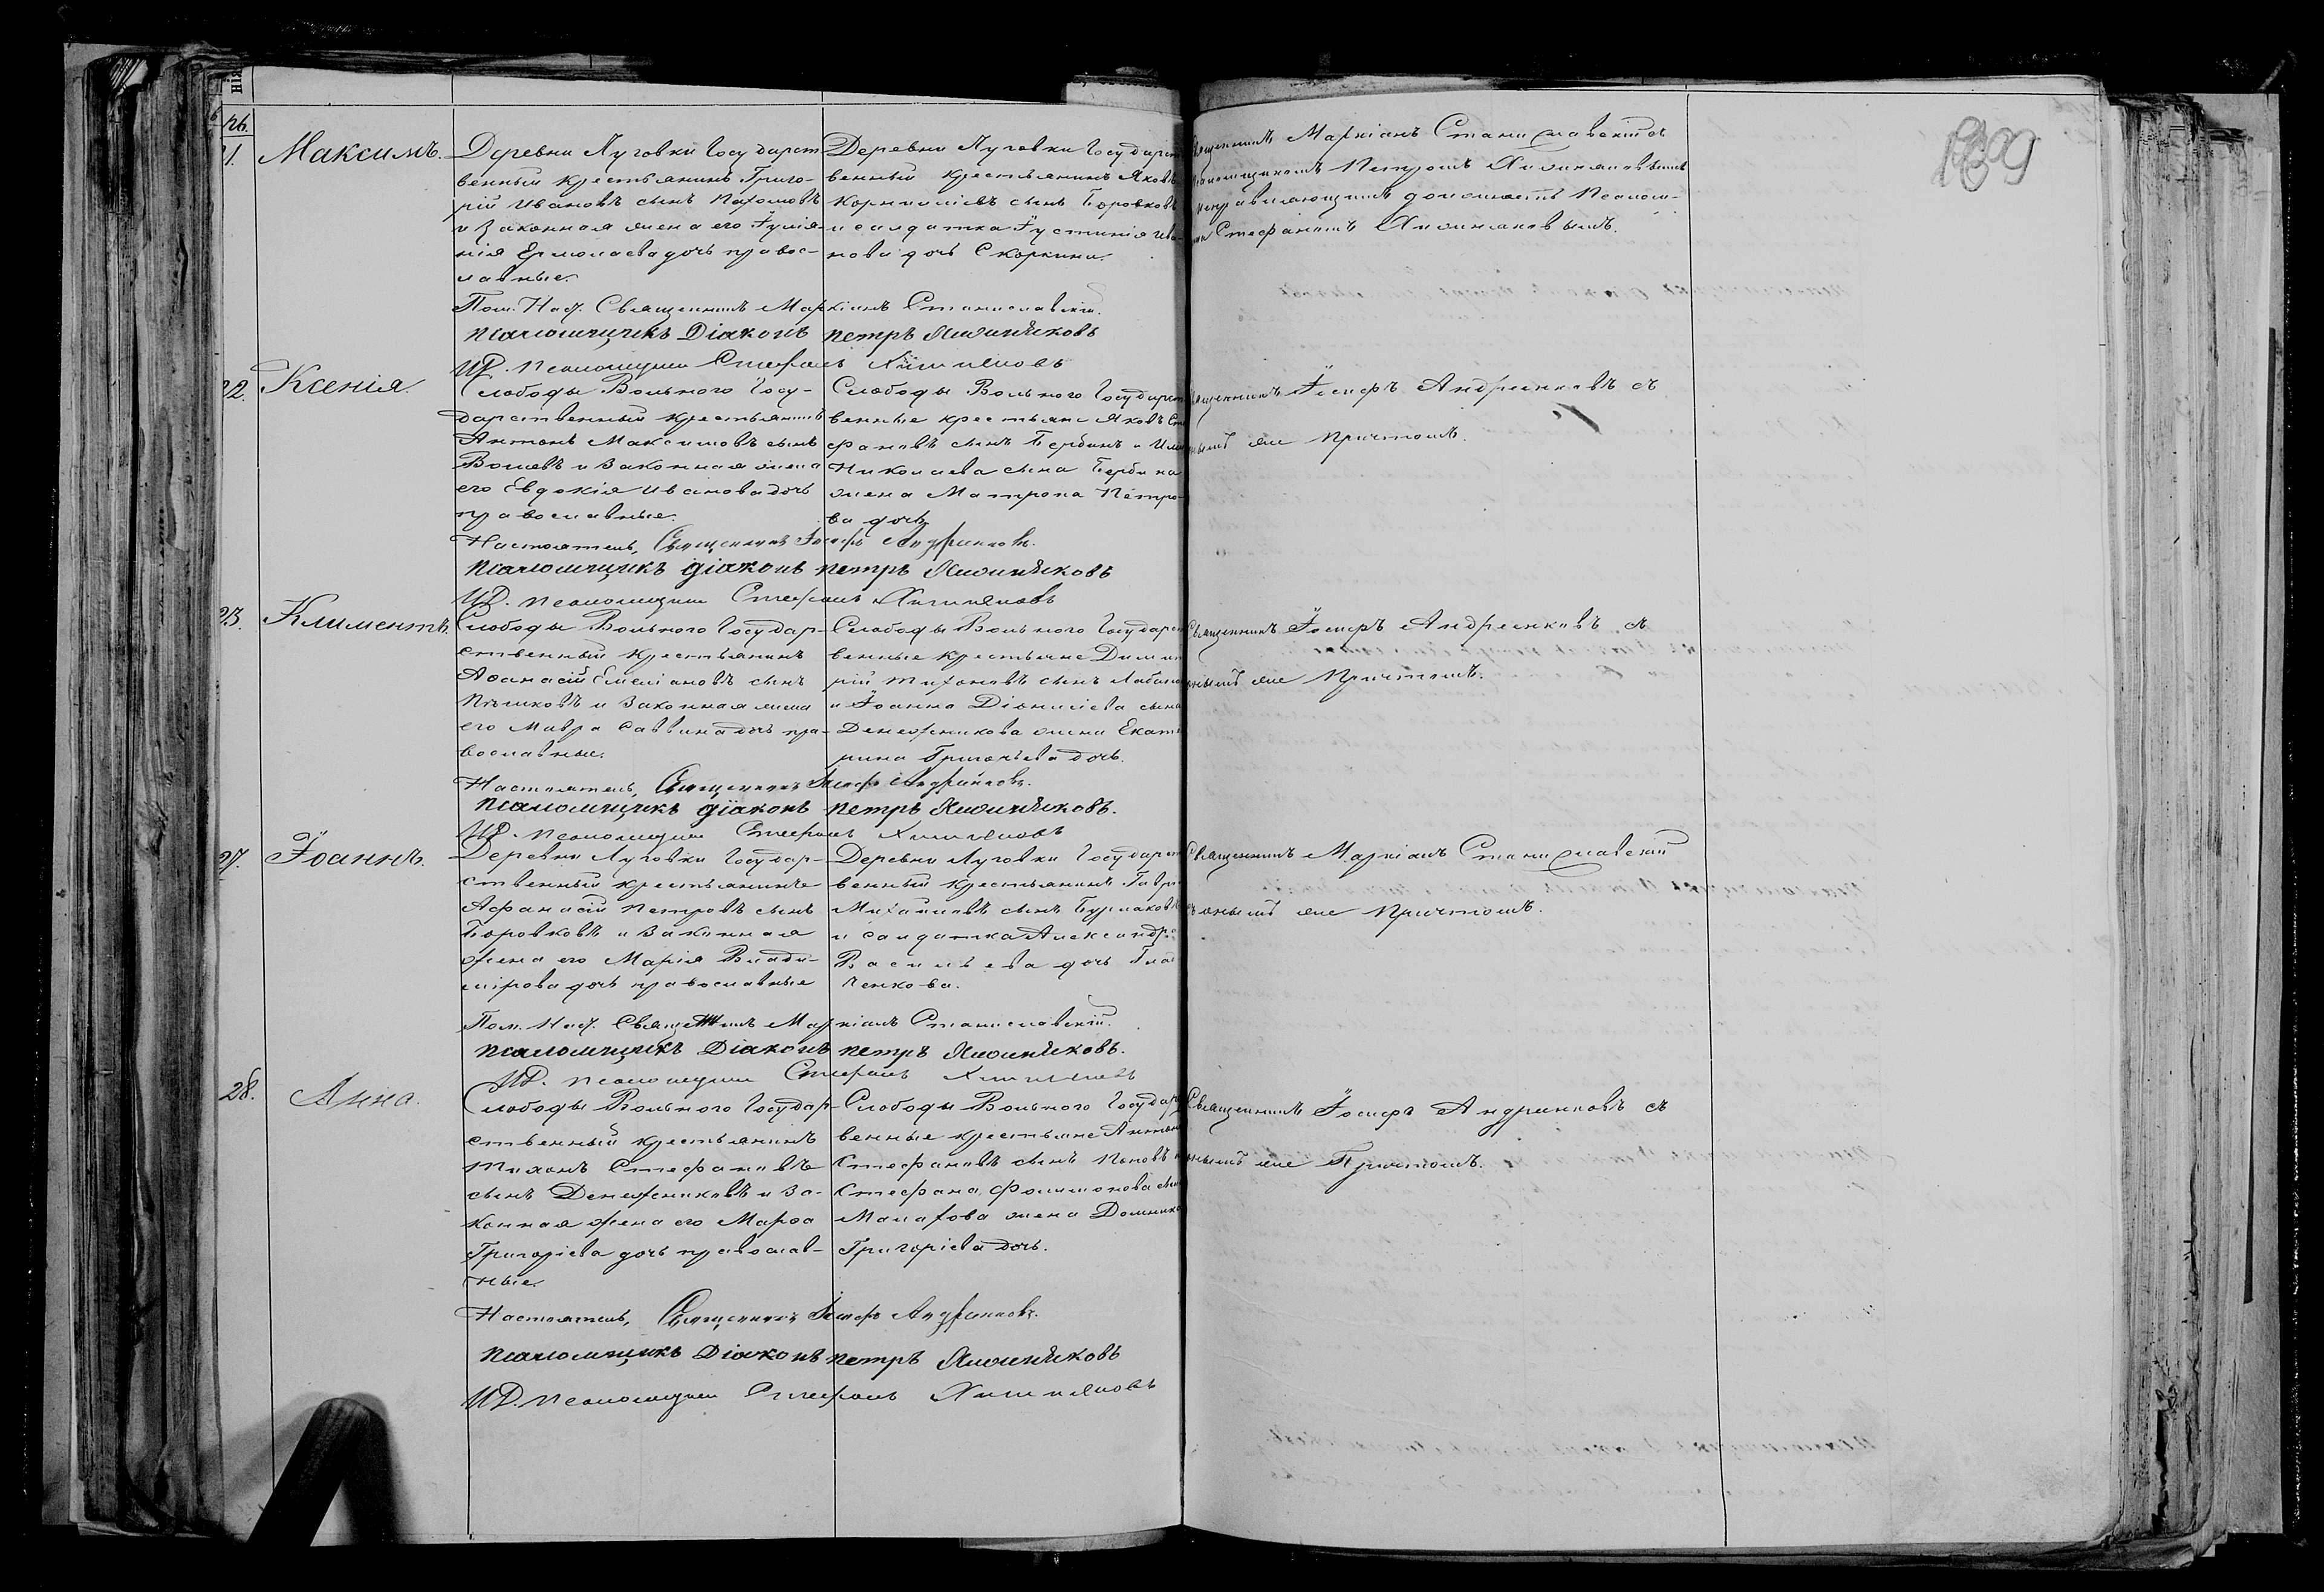 нія
26.
21. Максимъ.
Деревни Луговки Государст
венный крестьянинъ Григо-
рій Ивановъ сынъ Пахомовъ
и законная жена его Іулія-
нія Ермолаева дочь правос-
лавные.
Деревни Луговки Государст
венный крестьянинъ Яковъ
Корниліевъ сынъ Боровковъ
и салдатка Іустинія Ива-
нова дочь Скоркина.
Священникъ Маркіанъ Станиславскій съ
Псаломщикомъ Петромъ
исправляющимъ должность Псалом-
Стефаномъ
Пом. Наст. Священникъ Маркіанъ Станиславскій.
Псаломщикъ Діаконъ Петръ
И.Д. Псаломщика Стефанъ
22. Ксенія.
Слободы Вольного Госу-
дарственный крестьянинъ
Антонъ Максимовъ сынъ
и законная жена
его Евдокія Иванова дочь
православные.
Слободы Вольного Государст
венные крестьяне Яковъ Сте
фановъ сынъ Бербинъ и
Николаева сына Бербина
жена Матрона Петро-
ва дочь
Священникъ Іосифъ Андреенковъ съ
нымъ же Причтомъ.
Настоятель, Священникъ Іосифъ Андреенковъ.
Псаломщикъ діаконъ Петръ
И.Д. Псаломщика Стефанъ
23. Климентъ.
Слободы Вольного Государ-
ственный крестьянинъ
Аѳанасій Емеліановъ сынъ
и законная жена
его Мавра Саввина дочь пра-
вославные.
Слободы Вольного Государст
венные крестьяне Димит
рій Тихоновъ сынъ
и Іоанна Діонисіева сына
Денежникова жена Екате
рина Григорьева дочь.
Священникъ Іосифъ Андреенковъ съ
онымъ же Причтомъ.
Настоятель, Священникъ Іосифъ Андреенковъ.
Псаломщикъ діаконъ Петръ
И.Д. Псаломщика Стефанъ
27. Іоаннъ.
Деревни Луговки Государ-
ственный крестьянинъ
Афанасій Петровъ сынъ
Боровковъ и законная
жена его Марія Влади-
мірова дочь православные
Деревни Луговки Государст
венный крестьянинъ Гаврі
Михаиловъ сынъ Бурлаковъ
и салдатка Александра
Васильева дочь
ченкова.
Священникъ Маркіанъ Станиславскій
съ онымъ же Причтомъ.
Пом. Наст. Священникъ Маркіанъ Станиславскій.
Псаломщикъ Діаконъ Петръ
И.Д. Псаломщика Стефанъ
28. Анна.
Слободы Вольного Государ-
ственный крестьянинъ
Тихонъ Стефановъ
сынъ Денежниковъ и за-
конная жена его Марѳа
Григоріева дочь православ-
ные.
Слободы Вольного Государ
венные крестьяне Антонъ
Стефановъ сынъ Поповъ и
Стефана Филимонова сына
Малахова жена Домника
Григоріева дочь.
Священникъ Іосифъ Андреенковъ съ
нымъ же Причтомъ.
Настоятель, Священникъ Іосифъ Андреенковъ.
Псаломщикъ Діаконъ Петръ
И.Д. Псаломщика Стефанъ